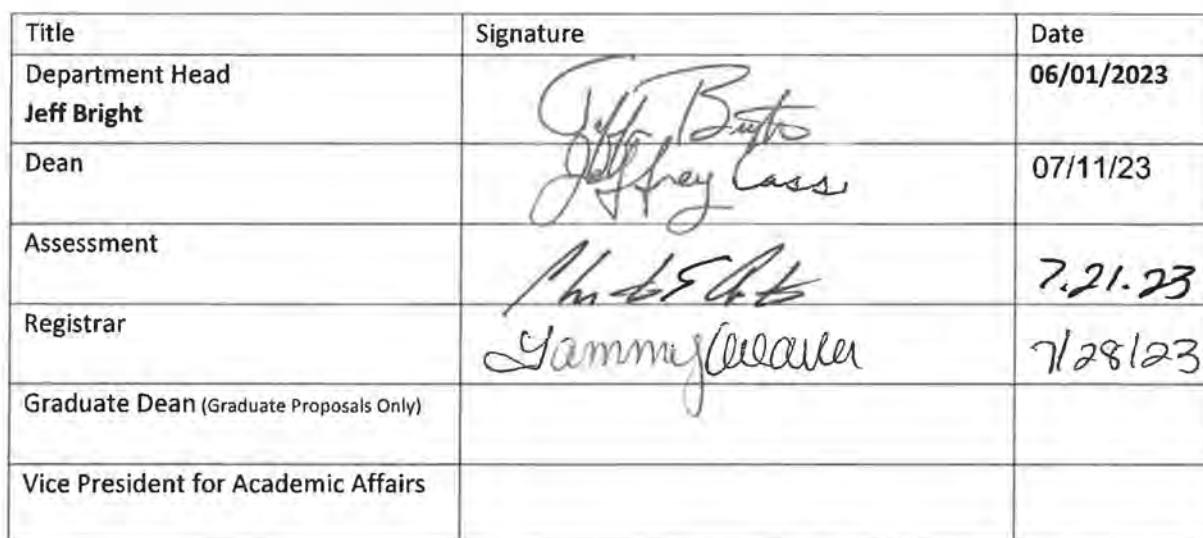 Title Signature Date
Department Head 06/01/2023
Jeff Bright
Dean Jeffrey Cass 07/11/23
Assessment 7.21.23
Registrar Tammy Weaver 7/28/23
Graduate Dean (Graduate Proposals Only)
Vice President for Academic Affairs